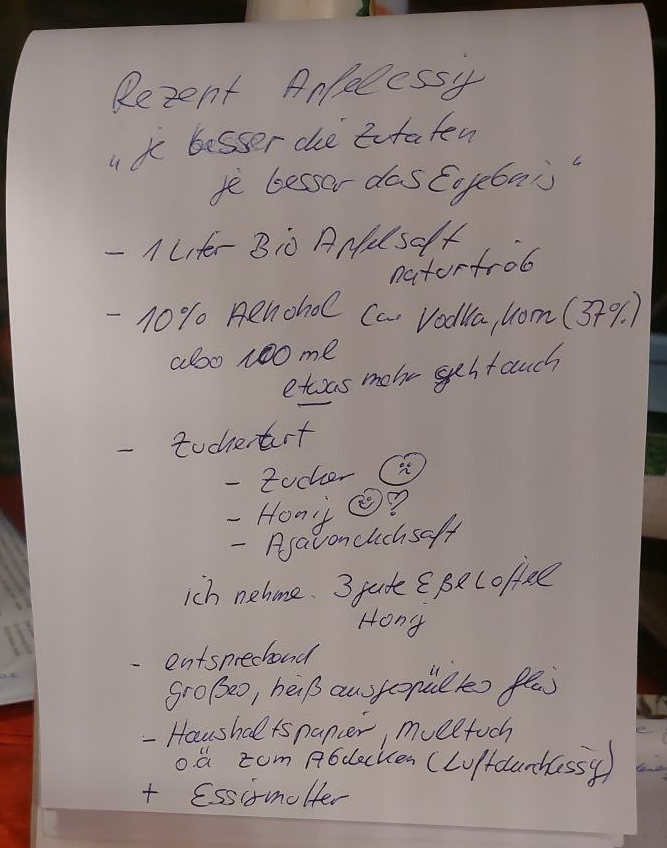 Rezept Apfelessig
"je besser die Zutaten
je besser das Ergebnis"
- 1 Liter Bio Apfelsaft
naturtrüb
- 10% Alkohol Vodka, Korn (37%)
also 100 ml
etwas mehr geht auch
- Zuckerart
- Zucker ☹
- Honig ☺
- Agavendicksaft
ich nehme. 3 gute Eßlöffel
Honig
- entsprechend
großes, heiß ausgespültes Glas
- Haushaltspapier, Mulltuch
o.ä zum Abdecken (Luftdurchlässig)
+ Essigmutter